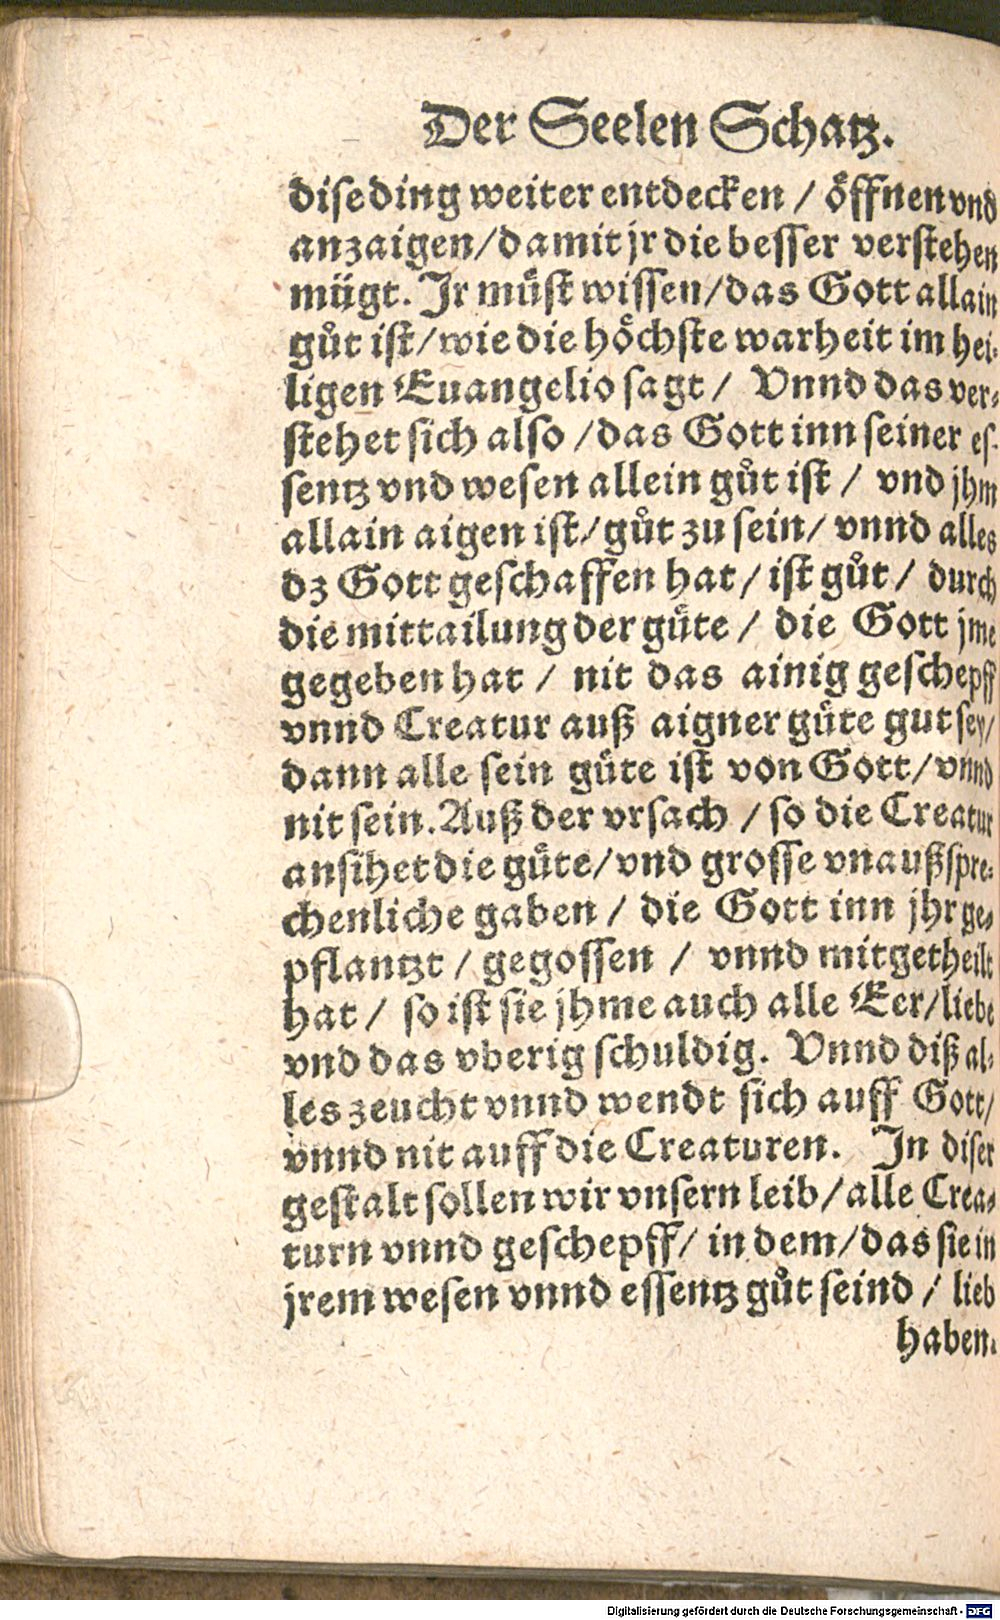 Der Seelen Schatz.
dise ding weiter entdecken / öffnen vnd
anzaigen/damit jr die besser verstehen
mügt. Jr müst wissen/das Gott allain
gůt ist/wie die höchste warheit im hei-
ligen Euangelio sagt / Vnnd das ver-
stehet sich also /das Gott inn seiner es-
sentz vnd wesen allein gůt ist / vnd jhm
allain aigen ist/gůt zu sein/ vnnd alles
dz Gott geschaffen hat / ist gůt / durch
die mittailung der güte / die Gott jme
gegeben hat / nit das ainig geschepff
vnnd Creatur auß aigner güte gut sey/
dann alle sein güte ist von Gott/vnnd
nit sein. Auß der vrsach / so die Creatur
ansihet die güte/vnd grosse vnaußspre-
chenliche gaben / die Gott inn jhr ge-
pflantzt / gegossen / vnnd mitgetheilt
hat / so ist sie jhme auch alle Eer/liebe
vnd das vberig schuldig. Vnnd diß al-
les zeucht vnnd wendt sich auff Gott/
vnnd nit auff die Creaturen. In diser
gestalt sollen wir vnsern leib/alle Crea-
turn vnnd geschepff/ in dem/das sie in
jrem wesen vnnd essentz gůt seind / lieb
haben.
Digitalisierung gefördert durch die Deutsche Forschungsgemeinschaft - DFG